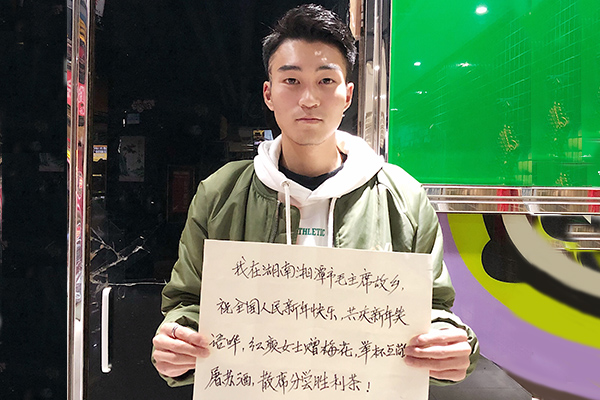 THLETIC
我在湖南湘潭市毛主席故乡,
祝全国人民新年快乐,共庆新年笑
语哗,红襄女士赠梅花,举杯互敬
屠苏酒,散席分尝胜利茶!